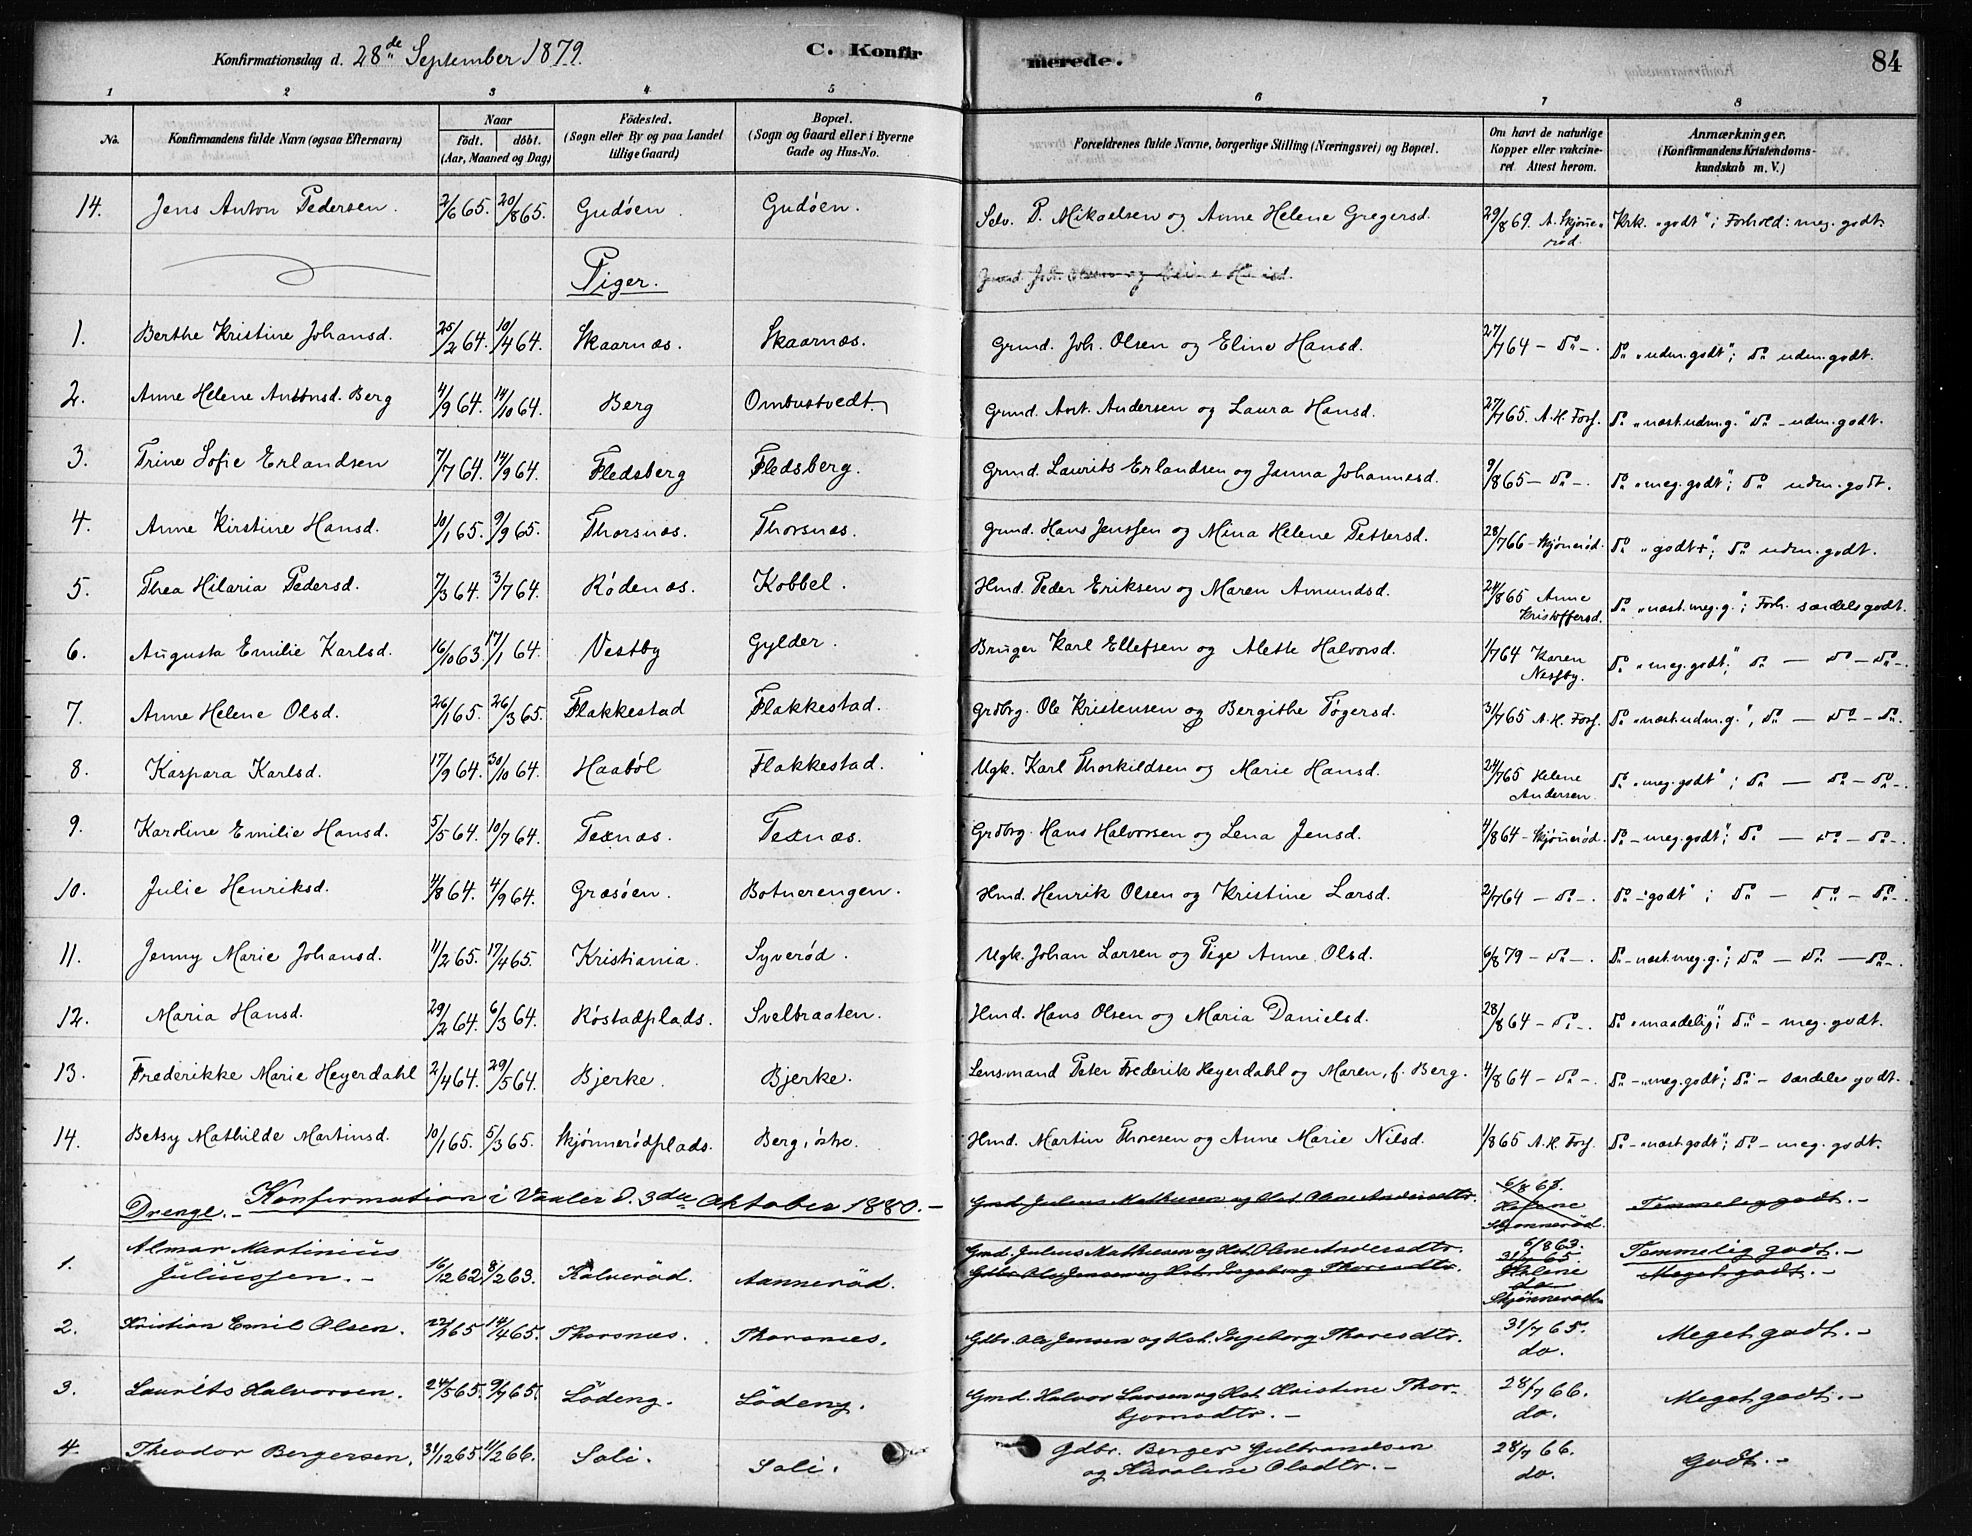 Konfirmationsdag d. 28de September 1879.
C. Konfirmerede.
84
1 2 3 4 5 6 7 8
No. Konfirmandens fulde Navn (ogsaa Efternavn) Naar födt. döbt. (Aar, Maaned og Dag) Födested. (Sogn eller By og paa Landet tillige Gaard) Bopæl. (Sogn og Gaard eller i Byerne Gade og Hus-No. Forældrenes fulde Navne, borgerlige Stilling (Næringsvei) og Bopæl. Om havt de naturlige Kopper eller vakcineret. Attest herom. Anmærkninger. (Konfirmandens Kristendomskundskab m. V.)
14. Jens Anton Pedersen. 2/6 65. 20/8 65. Gudöen. Gudöen. Selv. P. Mikaelsen og Anne Helene Gregersd. 29/8 69. A. Skjönneröd. Krk. "godt"; Forhold: meg. godt.
Piger.
1. Berthe Kristine Johansd. 25/2 64. 10/4 64. Skaarnæs. Skaarnæs. Grmd. Joh. Olsen og Eline Hansd. 27/7 64 - do -. do "udm. godt"; do udm. godt.
2. Anne Helene Antonsd. Berg 4/9 64. 14/10 64. Berg Ombustvedt. Grmd. Ant. Andersen og Laura Hansd. 27/7 65. A. H. Forf. do "næst. udm. g." do - udm. godt.
3. Trine Sofie Erlandsen 7/7 64. 14/9 64. Fledsberg Fledsberg. Grmd. Laurits Erlandsen og Janna Johannesd. 9/8 65 - do -. do "meg. godt"; do udm. godt.
4. Anne Kirstine Hansd. 10/1 65. 9/9 65. Thorsnæs. Thorsnæs. Grmd. Hans Jenssen og Mina Helene Pettersd. 28/7 66 - Skjönneröd. do "godt+"; do udm. godt.
5. Thea Hilaria Pedersd. 7/3 64. 3/7 64. Rödenæs. Kobbel. Hmd. Peder Eriksen og Maren Amundsd. 24/8 65 Anne Kristoffersd. do "næst. meg. g."; Forh. særdeles godt.
6. Augusta Emilie Karlsd. 16/10 63. 17/1 64. Vestby Gylder. Bruger Karl Ellefsen og Alette Halvorsd. 1/7 64 Karen Næssby. do "meg. godt"; do — do - do -.
7. Anne Helene Olsd. 26/1 65. 26/3 65. Flakkestad Flakkestad. Grdbrg. Ole Kristensen og Bergithe Tögersd. 31/7 65 A. H. Forf. do "næst. udm. g.", do — do - do.
8. Kaspara Karlsd. 17/9 64. 30/10 64. Haaböl Flakkestad. Ugk. Karl Thorkildsen og Marie Hansd. 24/7 65 Helene Andersen. do "meg. godt"; do — do - do -.
9. Karoline Emilie Hansd. 5/5 64. 10/7 64. Texnæs. Texnæs. Grdbrg. Hans Halvorsen og Lena Jensd. 4/8 64 - Skjönneröd. do - meg. godt"; do — do - do -.
10. Julie Henriksd. 4/8 64. 4/9 64. Græsöen. Botnerengen. Hmd. Henrik Olsen og Kristine Larsd. 2/7 64 - do -. do - "godt"; do — do - do -.
11. Jenny Marie Johansd. 11/2 65. 17/4 65. Kristiania. Syveröd. Ugk. Johan Larsen og Pige Anne Olsd. 6/8 79 - do -. do - næst. meg. g."; do — do — do -.
12. Maria Hansd. 29/2 64. 6/3 64. Röstadplads. Svelbraaten. Hmd. Hans Olsen og Maria Danielsd. 28/8 64 - do -. do "maadelig"; do - meg. godt.
13. Frederikke Marie Heyerdahl 2/4 64. 29/5 64. Bjerke. Bjerke. Lensmand Peter Frederik Heyerdahl og Maren, f. Berg. 4/8 64 - do -. do - "meg. godt"; do - særdeles godt.
14. Betsy Mathilde Martinsd. 10/1 65. 5/3 65. Skjönnerödplads. Berg, östre. Hmd. Martin Thoresen og Anne Marie Nilsd. 1/8 65 A. H. Forf. do - "næst. godt"; do - meg. godt.
Drenge. - Konfirmation i Vaaler d. 3die Oktober 1880. - Gmd. Julius Mathiesen og Hst. Oline Andersdtr. 6/8 63. Helene Skjønnerød. Temmelig godt. -
1. Almar Martinius Juliussen. - 16/12 62 8/2 63. Kalverød. Aannerød. Gmd. Julius Mathiesen og Hst. Oline Andersdtr. 6/8 63. Helene Skjønnerød. Temmelig godt. -
Gdbr. Ole Jensen og Hst. Ingeborg Thoresdtr. 31/7 65 do Meget godt. -
2. Kristian Emil Olsen. 22/1 65 14/4 65. Thorsnæs. Thorsnæs. Gdbr. Ole Jensen og Hst. Ingeborg Thoresdtr. 31/7 65. do. Meget godt. -
3. Laurits Halvorsen. 24/5 65. 9/7 65. Lödeng. Lödeng. Gmd. Halvor Larsen og Hst. Kristine Thorbjørnsdtr. - 28/7 66. do. Meget godt. -
4. Theodor Bergersen. 31/12 65 11/2 66. Soli. Soli. Gdbr. Berger Gulbrandsen og Karolene Olsdtr. - 28/7 66. do. Godt. -